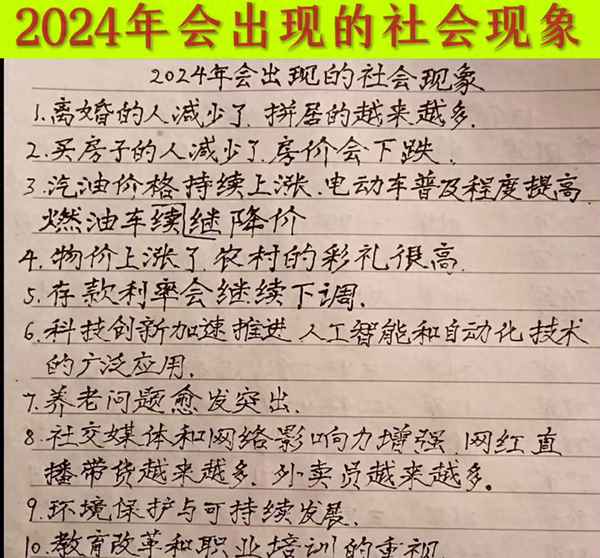 2024年会出现的社会现象
2024年会出现的社会现象
1.离婚的人减少了.拼居的越来越多.
2.买房子的人减少了.房价会下跌.
3.汽油价格持续上涨.电动车普及程度提高
燃油车续继降价
4.物价上涨了.农村的彩礼很高.
5.存款利率会继续下调.
6.科技创新加速推进 人工智能和自动化技术
的广泛应用.
7.养老问题愈发突出.
8.社交媒体和网络影响力增强.网红直
播带货越来越多.外卖员越来越多。
9.环境保护与可持续发展.
10.教育改革和职业培训的重视